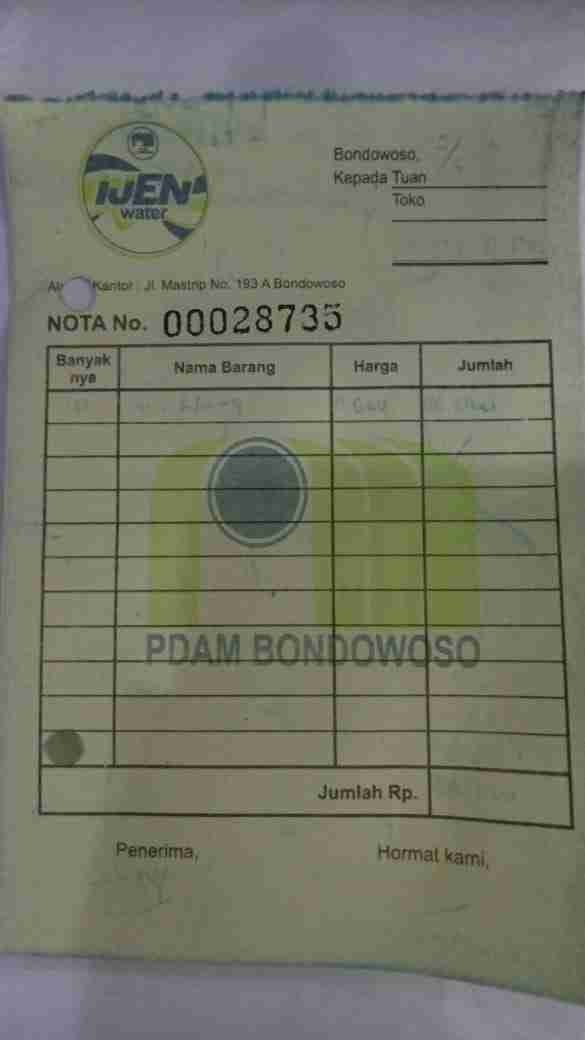 IJEN
water
Bondowoso,
Kepada Tuan
Toko
Kantor : Jl. Mastrip No. 193 A Bondowoso
NOTA No. 00028735
Banyak nya Nama Barang Harga Jumlah
PDAM BONDOWOSO
Jumlah Rp.
Penerima, Hormat kami,